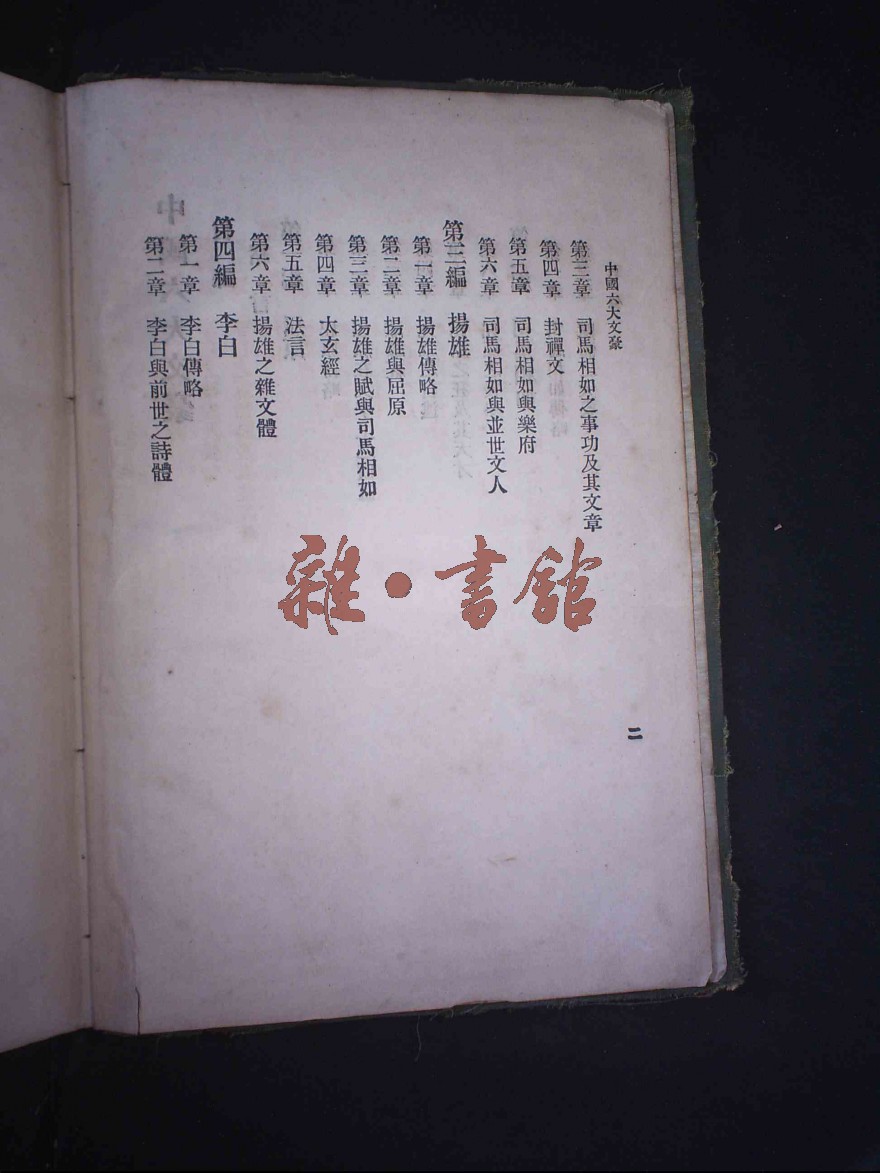 中國六大文豪
第三章 司馬相如之事功及其文章
第四章 封禪文
第五章 司馬相如與樂府
第六章 司馬相如與並世文人
第三編 揚雄
第一章 揚雄傳略
第二章 揚雄與屈原
第三章 揚雄之賦與司馬相如
第四章 太玄經
第五章 法言
第六章 揚雄之雜文體
第四編 李白
第一章 李白傳略
第二章 李白與前世之詩體
二
雜·書館